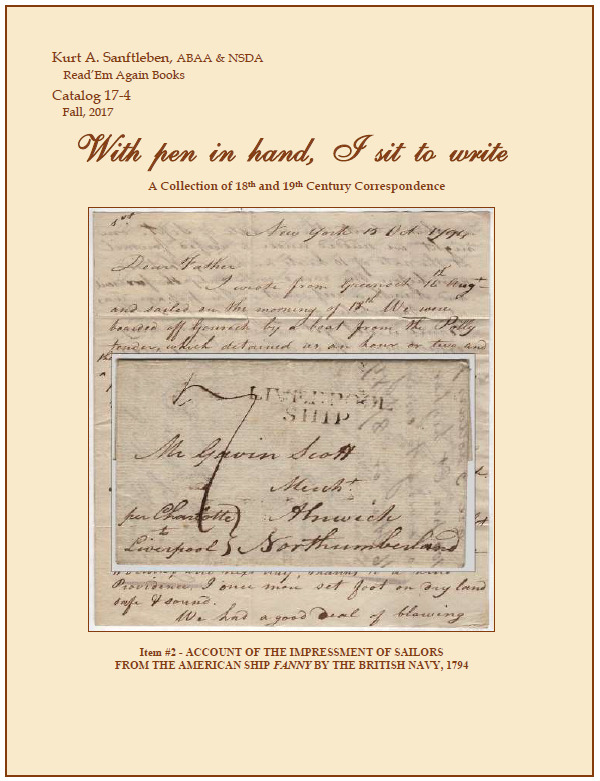 Kurt A. Sanftleben, ABAA & NSDA
Read'Em Again Books
Catalog 17-4
Fall, 2017
With pen in hand, I sit to write
A Collection of 18th and 19th Century Correspondence
New York 15 Oct. 1794
Dear Father
I wrote from Greenock 15th Augt
and sailed on the morning of 18th We were
boarded off Gourock by a boat from the Polly
tender, which detained us an hour or two and
LIVERPOOL
SHIP
Mr Gawin Scott
Mercht
per Charlotte Alnwick
to
Liverpool Northumberland
Providence, I once more set foot on dry land
safe & sound.
We had a good deal of blowing
Item #2 - ACCOUNT OF THE IMPRESSMENT OF SAILORS
FROM THE AMERICAN SHIP FANNY BY THE BRITISH NAVY, 1794